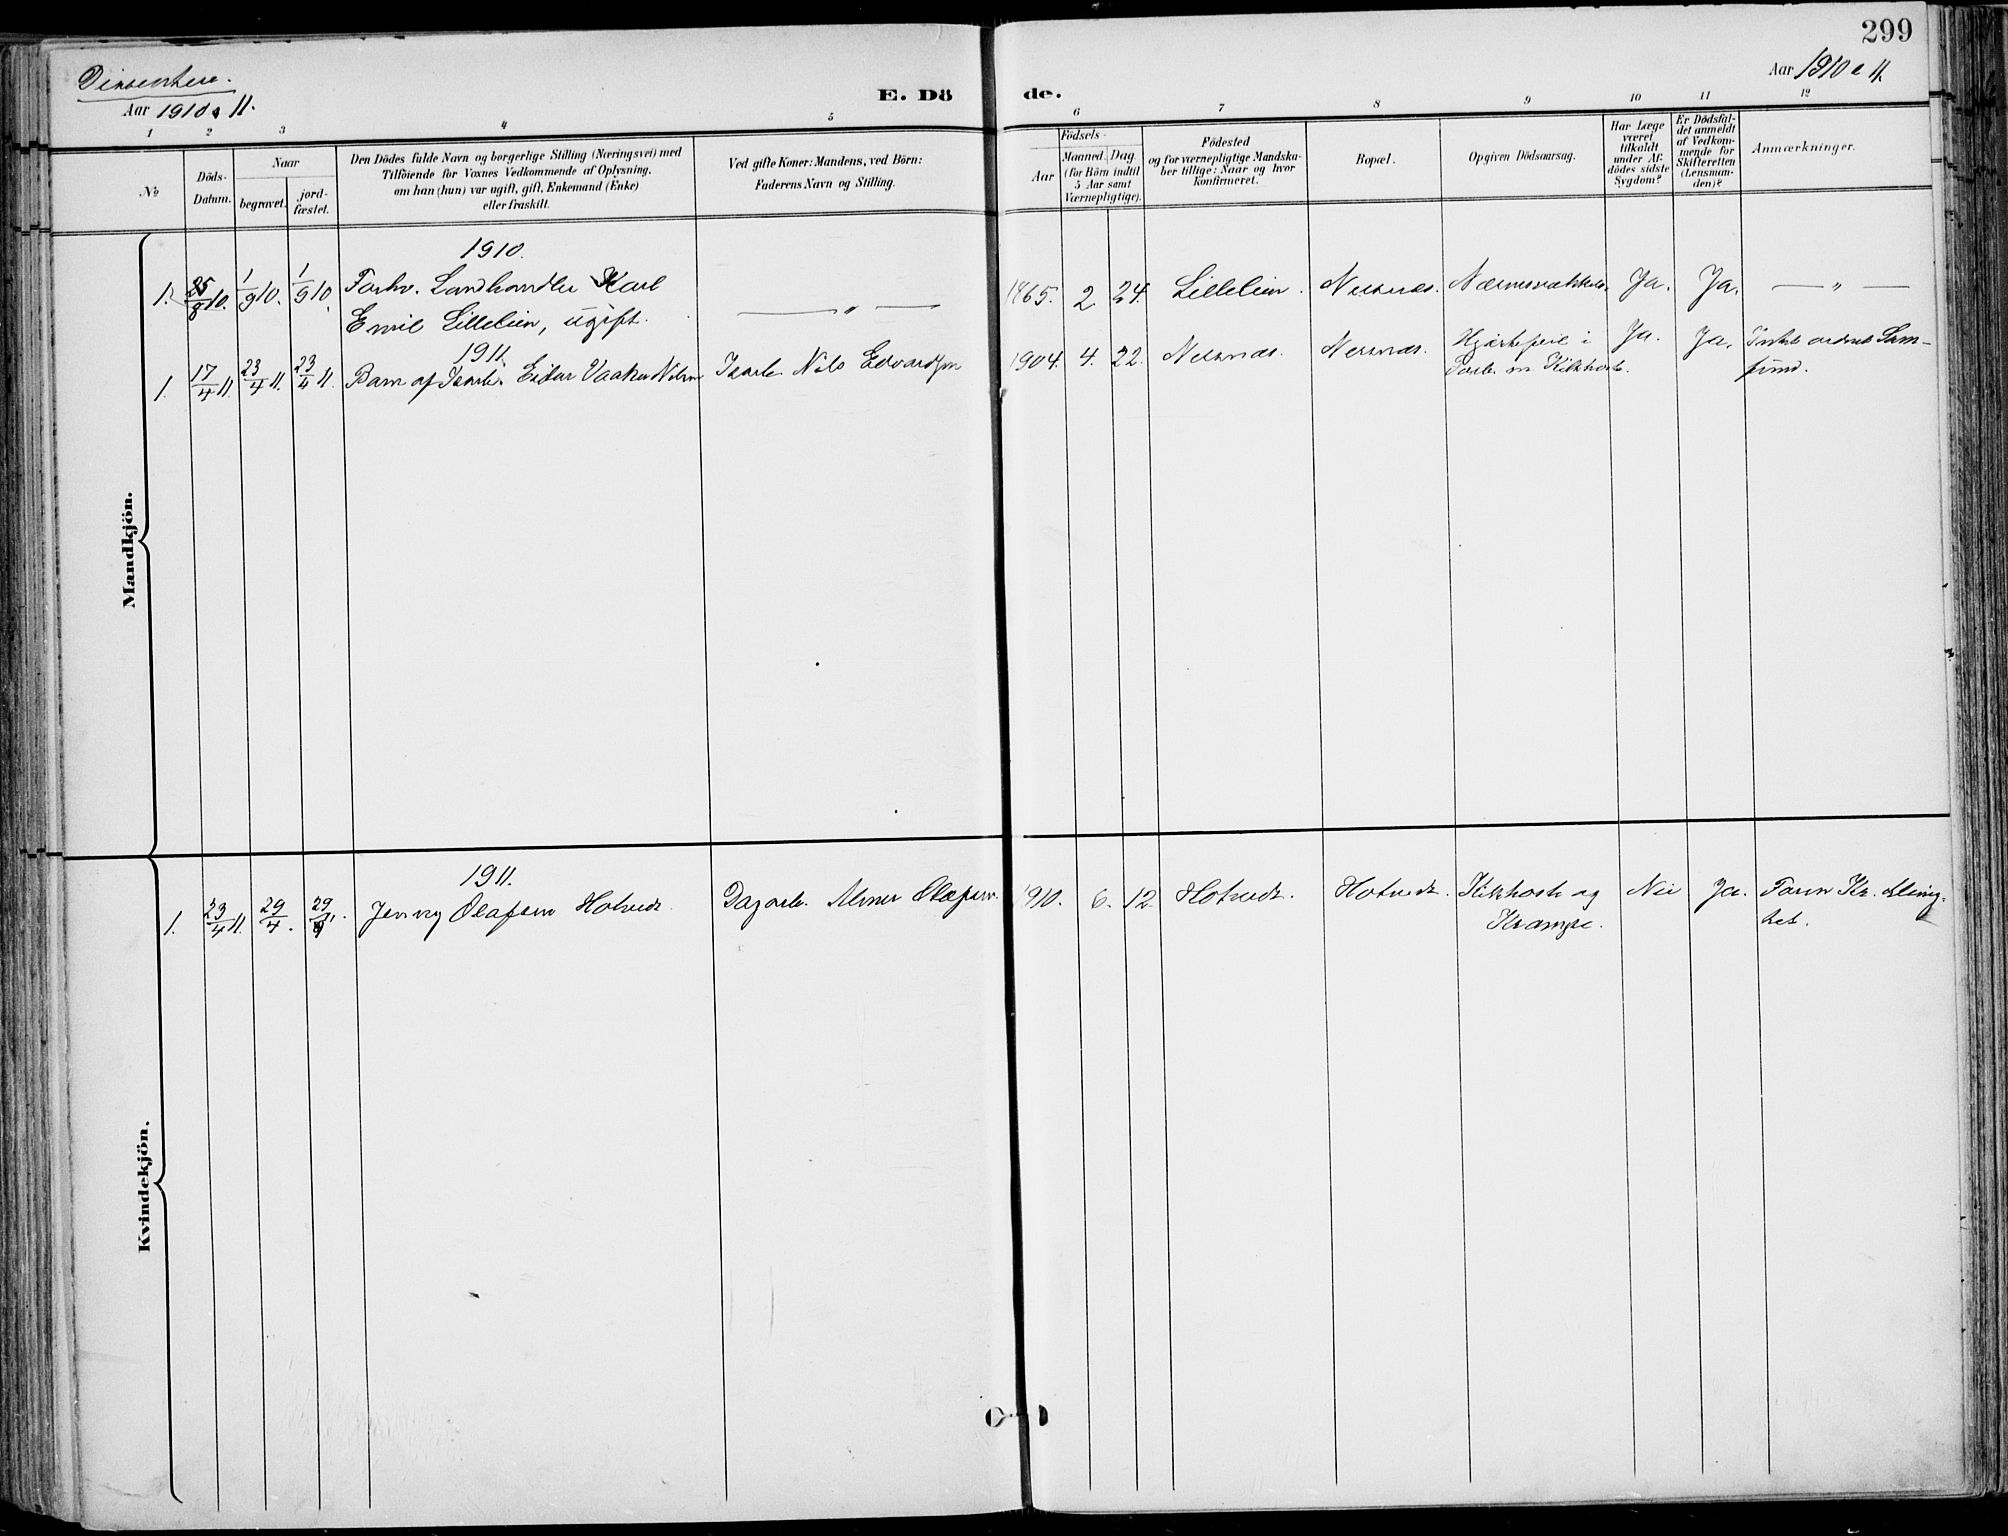 299
Dissentere.
Aar 1910 & 11.
E. Dö
de.
Aar 1910 & 11.
1 2 3 4 5 6 7 8 9 10 11 12
No
Döds-
Datum.
Naar
begravet.
jord-
fæstet.
Den Dödes fulde Navn og borgerlige Stilling (Næringsvei) med
Tilföiende for Voxnes Vedkommende af Oplysning,
om han (hun) var ugift, gift, Enkemand (Enke)
eller fraskilt.
Ved gifte Koner: Mandens, ved Börn:
Faderens Navn og Stilling.
Födsels-
Aar
Maaned. Dag.
(for Börn indtil
5 Aar samt
Værnepligtige).
Födested
og for værnepligtige Mandska-
ber tillige: Naar og hvor
konfirmeret.
Bopæl.
Opgiven Dödsaarsag.
Har Læge
været
tilkaldt
under Af-
dödes sidste
Sygdom?
Er Dödsfal-
det anmeldt
af Vedkom-
mende for
Skifteretten
(Lensman-
den)?
Anmærkninger.
Mandkjön.
1910.
1. 25/8 10. 1/9 10. 1/9 10. Forhv. Landhandler Karl
Emil Lillelien, ugift. — " — 1865. 2 24. Lillelien. Nesnæs. Ja. Ja. — " —
1911.
1. 17/4 11. 23/4 11. 23/4 11. Barn af Nils Edvardsen 1904. 4. 22. Nesnæs. Nesnæs. Hjertefeil i
Forb. m Kikhoste. Ja. Ja. Intet ordnet Sam-
fund.
Kvindekjön.
1911.
1. 23/4 11. 29/4. 29/4. Jenny Olafsen Hotvedt Dagarb. Olafsen. 1910. 6. 12. Hotvedt. Hotvedt. Kikhoste og
Krampe. Nei Ja.